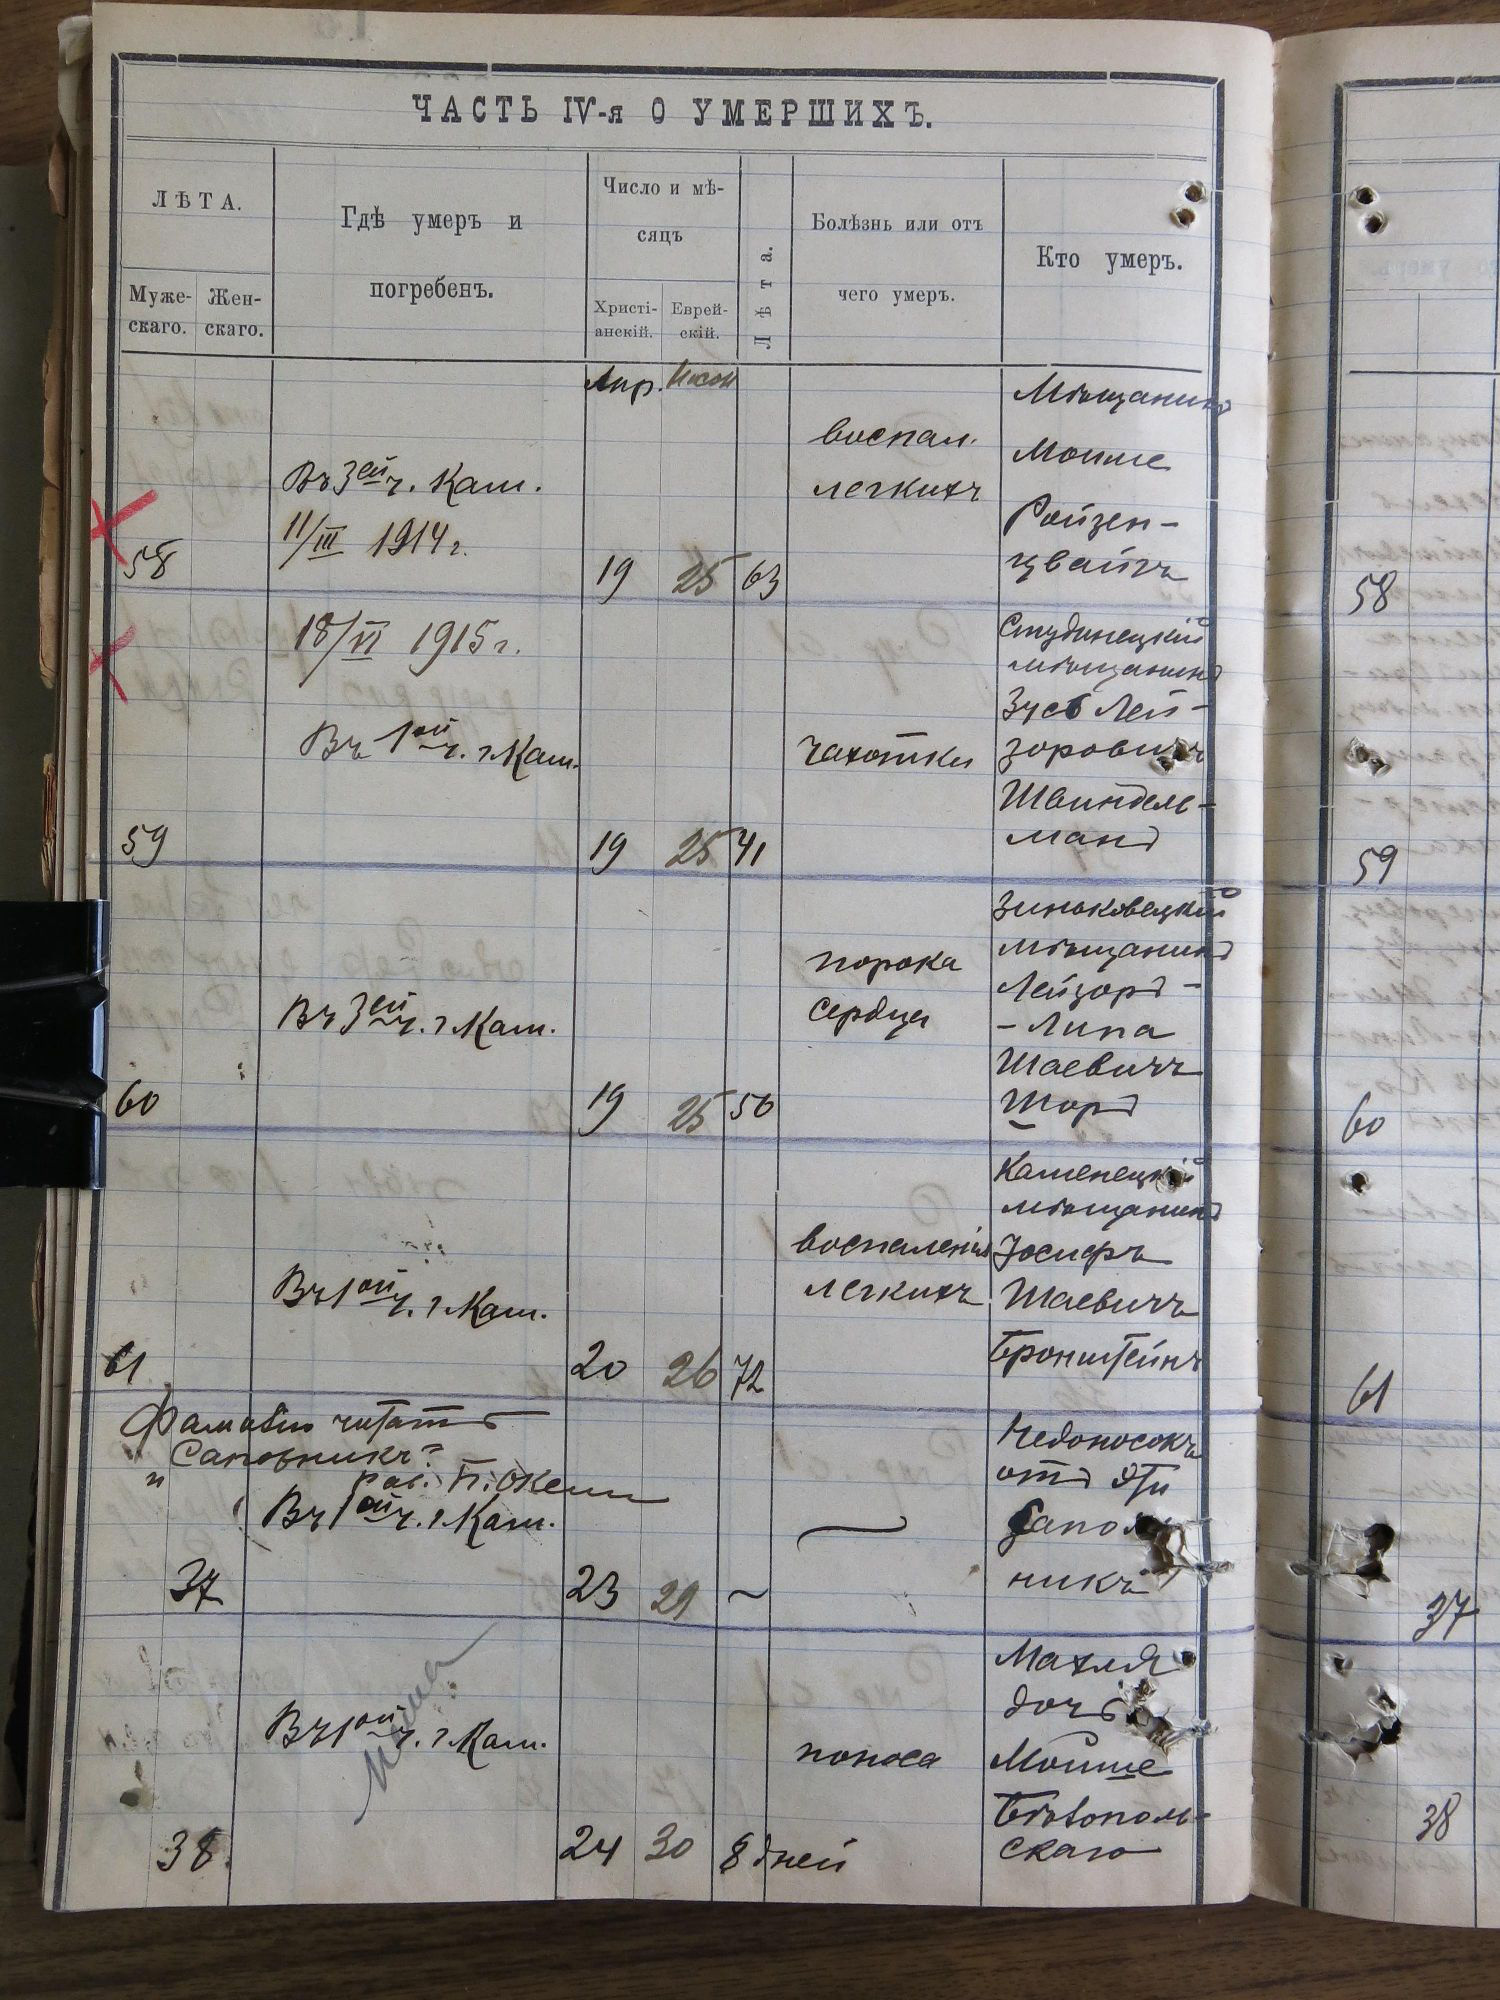 ЧАСТЬ IV-я О УМЕРШИХЪ.
ЛѢТА.
Муже-
скаго.
Жен-
скаго.
Гдѣ умеръ и
погребенъ.
Число и мѣ-
сяцъ
Христі-
анскій.
Еврей-
скій.
Лѣта.
Болѣзнь или отъ
чего умеръ.
Кто умеръ.
Апр. Нисон
Мѣщанинъ
воспал.
Мошше
Въ 3ей ч. Кам.
легкихъ
Ройзен-
11/III 1914 г.
цвайгъ
58
19 25 63
58
18/VI 1915 г.
Студенецкій
мѣщанинъ
Зусь Лей-
Въ 1ой ч. г Кам.
чахотки
зоровичъ
Швиндель-
манъ
59
19 25 41
59
Зиньковецкій
мѣщанинъ
порока
Лейзоръ-
Въ 3ей ч. г Кам.
сердца
-Липа
Шаевичъ
Шоръ
60
19 25 50
60
Каменецкій
мѣщанинъ
воспаленія
Іосифъ
Въ 1ой ч. г Кам.
легкихъ
Шаевичъ
Бронштейнъ
61
20 26 72
61
читать
Сапожникъ?
Недоносокъ
отъ Эти
Въ 1ой ч. г Кам.
никъ
37
23 29 ~
37
Махля
дочь
Въ 1ой ч. г Кам.
поноса
Мойше
Бѣлополь-
скаго
38
24 30 8 дней
38